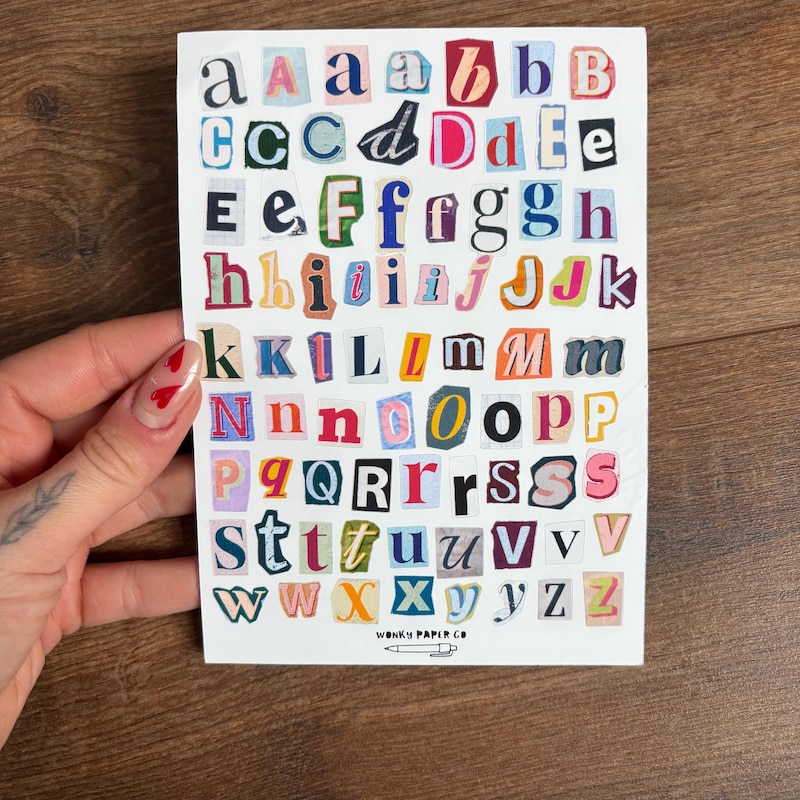 a A a a b b B
C c C d D d E e
E e F f f g g h
h h i i i i j J J k
k K l L l m M m
N n n O O o p P
P q Q R r r s S S
S t t t u u v v V
w w x x y y z z
WONKY PAPER CO